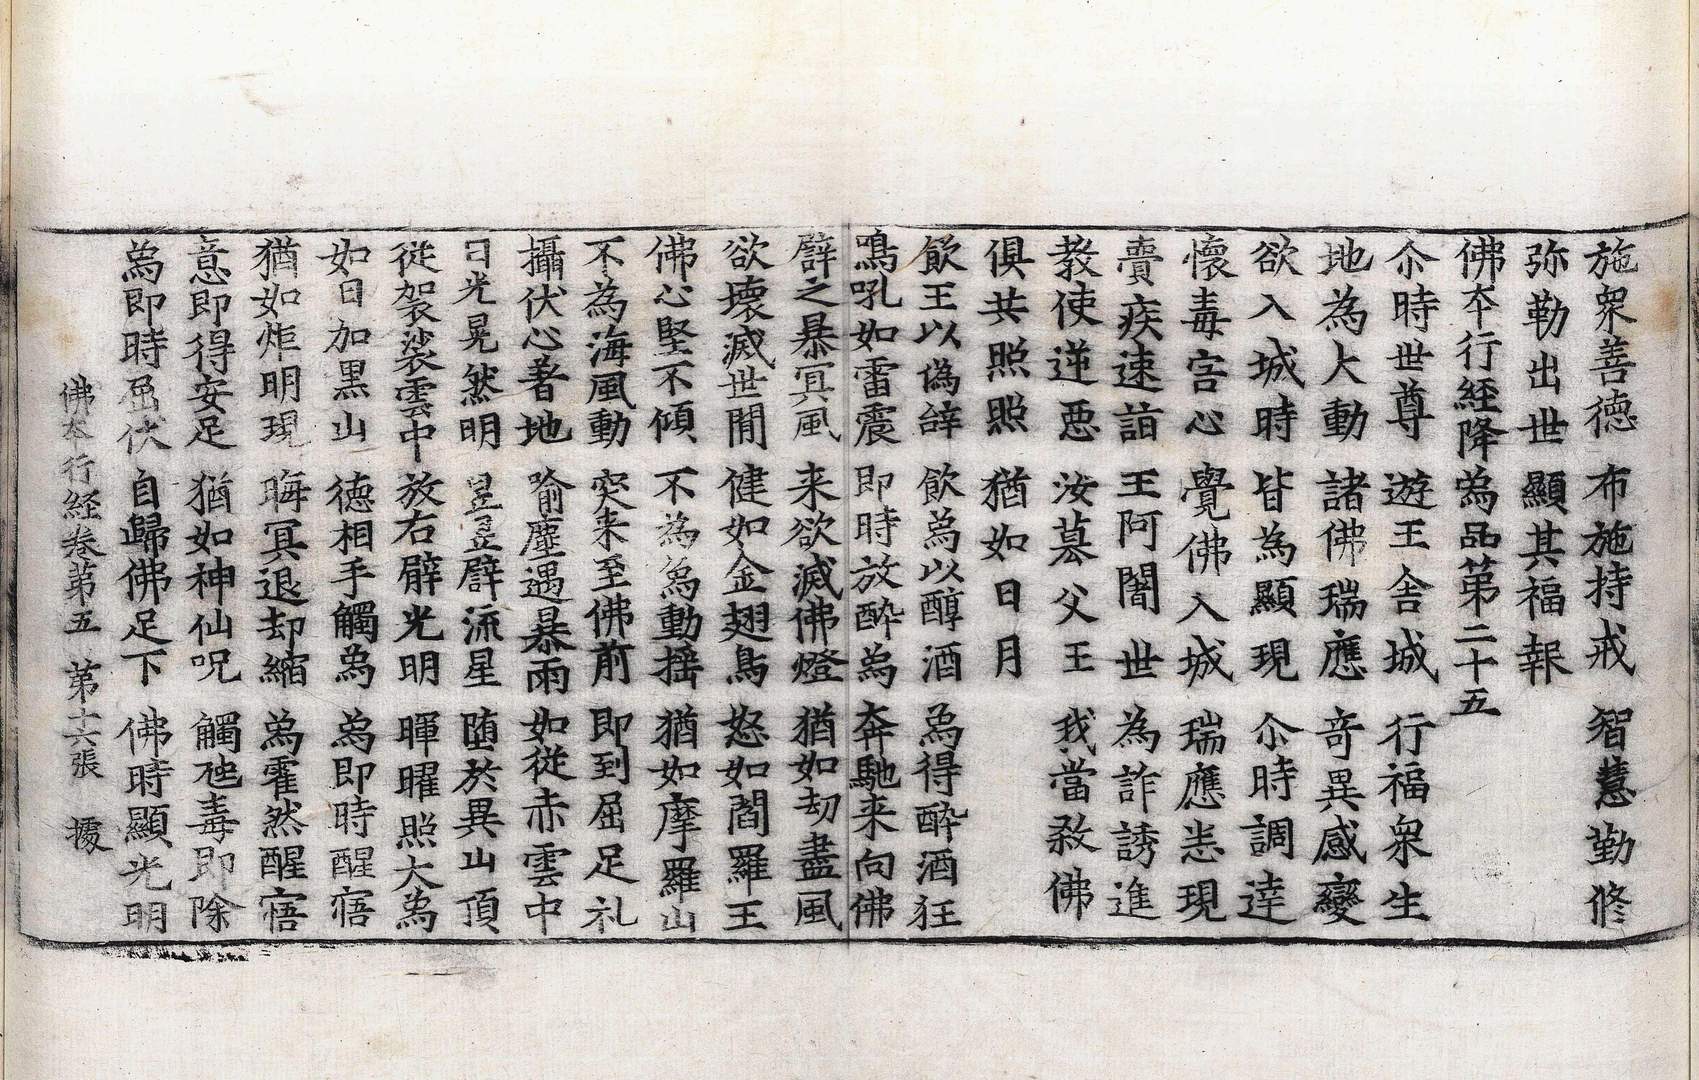 施衆善德 布施持戒 智慧勤修
弥勒出世 顯其福報
佛夲行經降爲品第二十五
尒時世尊 遊王舍城 行福衆生
地為大動 諸佛瑞應 竒異感變
欲入城時 皆為顯現 尒時調達
懷毒害心 覺佛入城 瑞應悉現
賷疾速詣 王阿闍世 為詐誘進
教使逆惡 汝墓父王 我當敎佛
俱共照照 猶如日月
飲王以偽辝 飲爲以醇酒 爲得酔酒狂
鳴吼如雷震 即時放酔爲 奔馳来向佛
譬之暴冥風 来欲滅佛燈 猶如劫盡風
欲壞滅世閒 健如金翅鳥 怒如閻羅王
佛心堅不傾 不為爲動揺 猶如摩羅山
不為海風動 突来至佛前 即到屈足礼
攝伏心著地 喻塵遇暴雨 如從赤雲中
日光晃然明 昱昱譬流星 堕於異山頂
從袈裟雲中 放右臂光明 暉曜照大爲
如日加黒山 德相手觸爲 爲即時醒寤
猶如炬明現 晦冥退却縮 爲霍然醒寤
意即得安足 猶如神仙呪 觸虵毒即除
爲即時屈伏 自歸佛足下 佛時顯光明
佛夲行經卷苐五 苐十六張 據